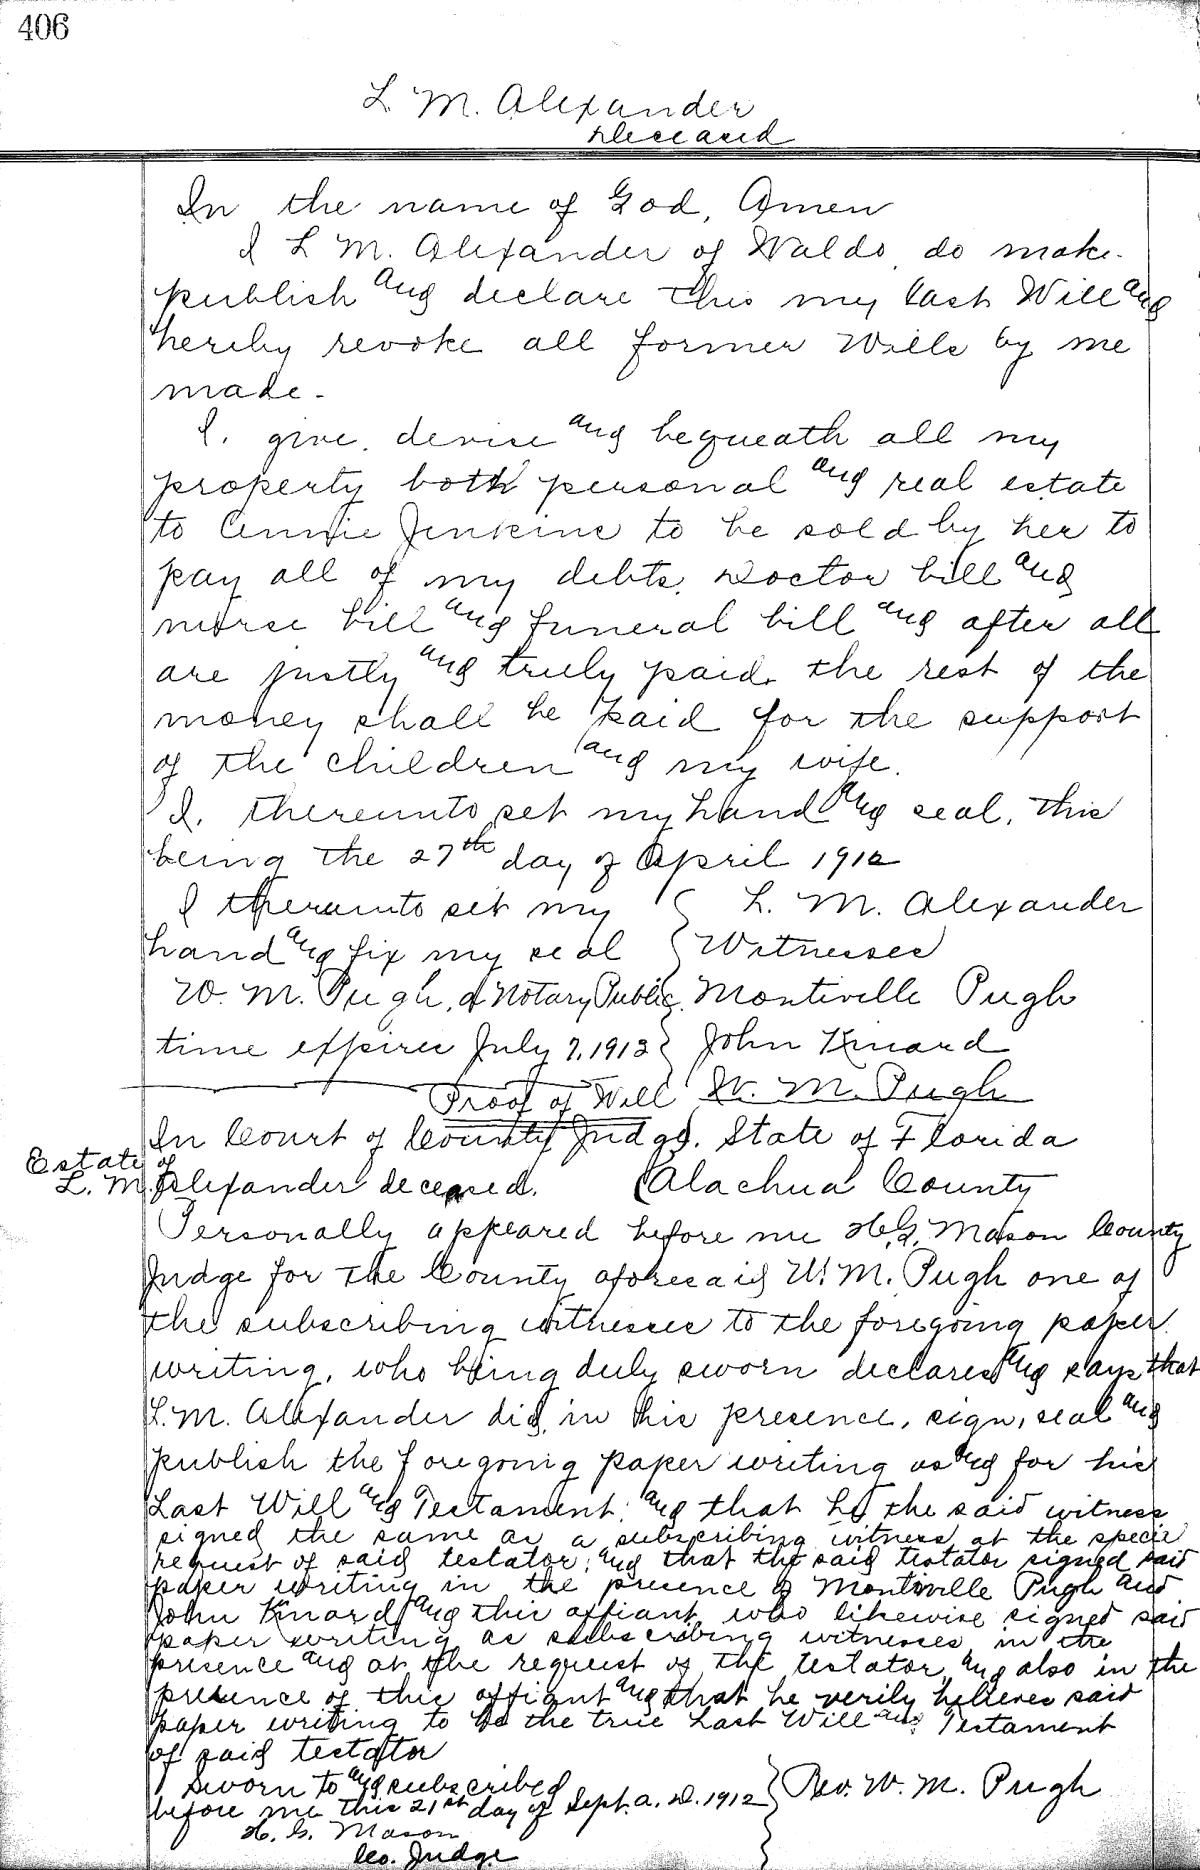 406
L. M. Alexander
Deceased
In the name of God, Amen
I L. M. Alexander of Waldo, do make.
publish and declare this my last Will and
hereby revoke all former Wills by me
made.
I. give. devise and bequeath all my
property both personal and real estate
to Annie Jenkins to be sold by her to
pay all of my debts. Doctor bill and
nurse bill and funeral bill and after all
are justly and truly paid. the rest of the
money shall be paid for the support
of the children and my wife.
I. thereunto set my hand and seal, this
being the 27th day of April 1912
I thereunto set my { L. M. Alexander
hand and fix my seal { Witnesses
W. M. Pugh, a Notary Public. Montiville Pugh
time expires July 7, 1913 } John Kinard
Proof of Will W. M. Pugh
In Court of County Judge. State of Florida
Estate of
L. M. Alexander deceased. Alachua County
Personally appeared before me H. G. Mason County
Judge for the County aforesaid W. M. Pugh one of
the subscribing witnesses to the foregoing paper
writing, who being duly sworn declares and says that
L. M. Alexander did, in his presence, sign, seal and
publish the foregoing paper writing as and for his
Last Will and Testament; and that he the said witness
signed the same as a subscribing witness at the special
request of said testator; and that the said testator signed said
paper writing in the presence of Montiville Pugh and
John Kinard, and this affiant, who likewise signed said
paper writing as subscribing witnesses in the
presence and at the request of the testator, and also in the
presence of this affiant and that he verily believes said
paper writing to be the true Last Will and Testament
of said testator
Sworn to and subscribed
before me this 21st day of Sept. A. D. 1912 } Rev. W. M. Pugh
H. G. Mason
Co. Judge